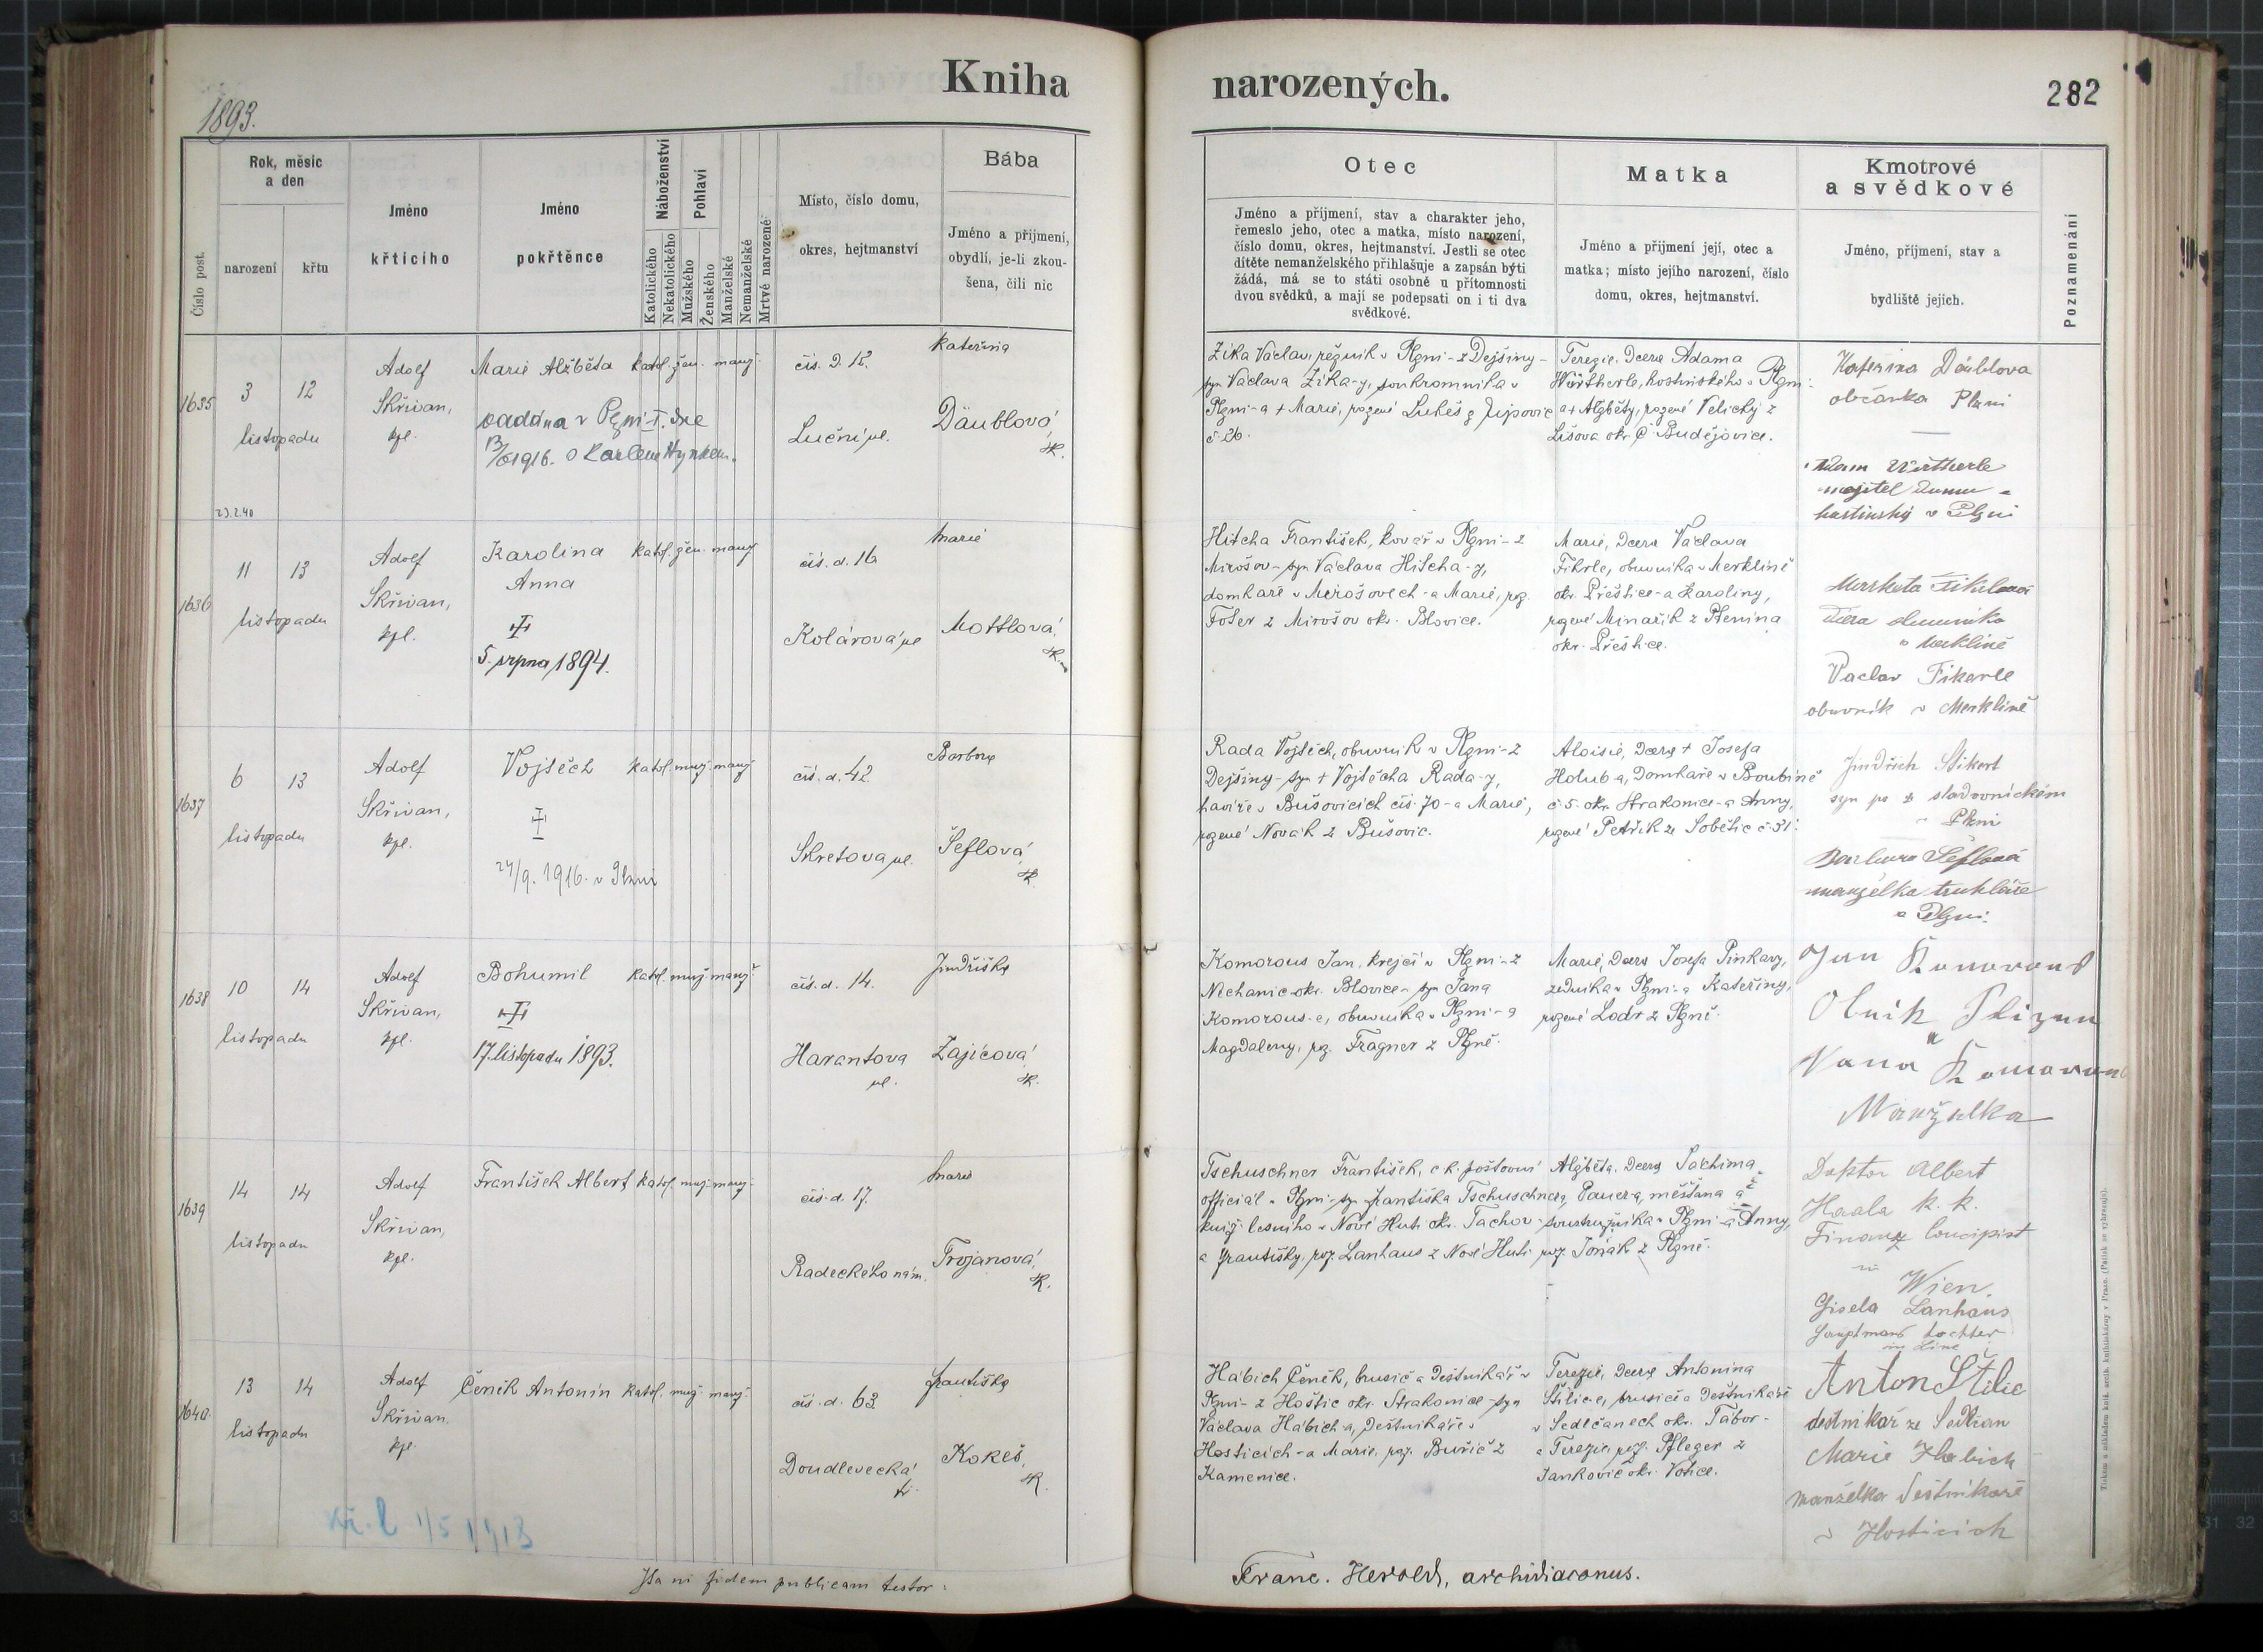 Kniha
narozených.
282
1893.
Číslo post.
Rok, měsíc
a den
narození
křtu
Jméno
křticího
Jméno
pokřtěnce
Náboženství
Katolického
Nekatolického
Pohlaví
Mužského
Ženského
Manželské
Nemanželské
Mrtvě narozené
Místo, číslo domu,
okres, hejtmanství
Bába
Jméno a příjmení,
obydlí, je-li zkou-
šena, čili nic
Otec
Jméno a příjmení, stav a charakter jeho,
řemeslo jeho, otec a matka, místo narození,
číslo domu, okres, hejtmanství. Jestli se otec
dítěte nemanželského přihlašuje a zapsán býti
žádá, má se to státi osobně u přítomnosti
dvou svědků, a mají se podepsati on i ti dva
svědkové.
Matka
Jméno a příjmení její, otec a
matka; místo jejího narození, číslo
domu, okres, hejtmanství.
Kmotrové
a svědkové
Jméno, příjmení, stav a
bydliště jejich.
Poznamenání
1635
3
12
listopadu
Adolf
Skřivan,
kpl.
Marie Alžběta
oddána v Plzni I. dne
13/6 1916. s Karlem Hynkem.
23.2.40
katol. žen. manž.
čís. d. 12.
Luční ul.
Kateřina
Däublová,
zk.
Zika Václav, řezník v Plzni - z Dejšiny -
syn Václava Zika-y, soukromníka v
Plzni - a + Marie, rozené Lukeš z Jupovic
č. 26.
Terezie, dcera Adama
Würtherle, hostinského v Plzni
a + Alžběty, rozené Velický z
Lišova okr. Č. Budějovice.
Kateřina Däublova
občanka Plzni
Adam Würtherle
majitel domu a
hostinský v Plzni
1636
11
13
listopadu
Adolf
Skřivan,
kpl.
Karolina
Anna
5. srpna 1894.
katol. žen. manž.
čís. d. 16
Kolárova ul
Marie
Mottlová,
zk.
Hitcha František, kovář v Plzni - z
Mirošov - syn Václava Hitcha-y,
domkáře v Mirošovech - a Marie, roz.
Fošer z Mirošov okr. Blovice.
Marie, dcera Václava
Fikrle, obuvníka v Merklíně
okr. Přeštice - a Karoliny,
rozené Minařík z Ptenína
okr. Přeštice.
Markéta Fikrlová
dcera obuvníka
v Merklíně
Vaclav Fikerle
obuvník v Merklíně
1637
6
13
listopadu
Adolf
Skřivan,
kpl.
Vojtěch
24/9. 1916. v Plzni
katol. muž. manž.
čís. d. 42
Skretova ul.
Barbora
Šeflová,
zk.
Rada Vojtěch, obuvník v Plzni - z
Dejšiny - syn + Vojtěcha Rada-y,
havíře v Bušovicích čís. 70 - a Marie,
rozené Novák z Bušovic.
Aloisie, dcera + Josefa
Holub-a, domkáře v Boubíně
č. 5. okr. Strakonice - a Anny,
rozené Petřík ze Sobětic č. 31.
Jindřich Sikert
syn po + sladovnickém
v Plzni
Barbora Šeflová
manželka truhláře
v Plzni.
1638
10
14
listopadu
Adolf
Skřivan,
kpl.
Bohumil
17. listopadu 1893.
katol. muž. manž.
čís. d. 14.
Harantova
ul.
Jindřiška
Zajícová,
zk.
Komorous Jan, krejčí v Plzni - z
Nechanic okr. Blovice - syn Jana
Komorous-e, obuvníka v Plzni - a
Magdaleny, roz. Fragner z Plzně.
Marie, dcera Josefa Pinkavy,
zedníka v Plzni - a Kateřiny,
rozené Lodr z Plzně.
Jan Komorous
Manželka
1639
14
14
listopadu
Adolf
Skřivan,
kpl.
František Albert
katol. muž. manž.
čís. d. 17.
Radeckého nám.
Marie
Trojanová,
zk.
Tschuschner František, c. k. poštovní
official v Plzni - syn Františka Tschuschnera,
kníž. lesního v Nové Huti okr. Tachov -
a Františky, roz. Lanhaus z Nové Huti
Alžběta, dcera Jáchima
Pauera, měšťana a
soustružníka v Plzni - a Anny,
roz. Jonák z Plzně.
Doktor Albert
Haala k. k.
Finanz Concipist
in
Wien.
Gisela Lanhaus
Hauptmans tochter
1640
13
14
listopadu
Adolf
Skřivan.
kpl.
Čeněk Antonín
katol. muž. manž.
čís. d. 63
Doudlevecká
tř.
Františka
Kokeš,
zk.
Habich Čeněk, brusič a deštníkář v
Plzni - z Hoštic okr. Strakonice - syn
Václava Habich-a, deštníkáře v
Hosticích - a Marie, roz. Buřič z
Kamenice.
Terezie, dcera Antonína
Štilic-e, brusiče a deštníkáře
v Sedlčanech okr. Tábor -
a Terezie, roz. Pfleger z
Jankovic okr. Votice.
Anton Štilic
destnikař ze Sedlčan
Marie Habich
manželka deštníkaře
v Hosticich
Ita in fidem publicam testor:
Franc. Herold, archidiaconus.